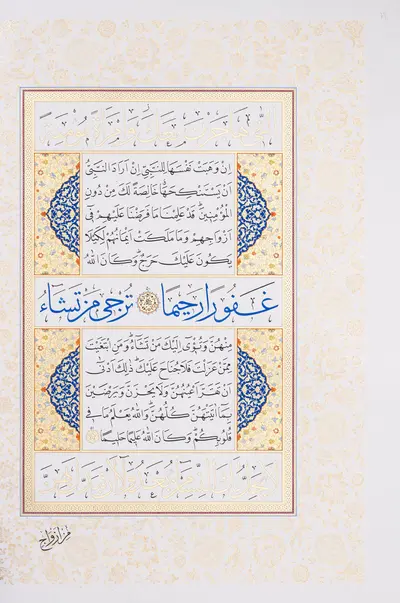 اِنْ وَهَبَتْ نَفْسَهَا لِلنَّبِىِّ اِنْ اَرَادَ النَّبِىُّ
اَنْ يَسْتَنْكِحَهَا خَالِصَةً لَكَ مِنْ دُونِ
الْمُؤْمِنِينَ قَدْ عَلِمْنَا مَا فَرَضْنَا عَلَيْهِمْ فِى
اَزْوَاجِهِمْ وَمَا مَلَكَتْ اَيْمَانُهُمْ لِكَيْلَا
يَكُونَ عَلَيْكَ حَرَجٌ وَكَانَ اللهُ
غَفُورًا رَحِيمًا تُرْجِى مَنْ تَشَاءُ
مِنْهُنَّ وَتُؤْوِى اِلَيْكَ مَنْ تَشَاءُ وَمَنِ ابْتَغَيْتَ
مِمَّنْ عَزَلْتَ فَلَا جُنَاحَ عَلَيْكَ ذٰلِكَ اَدْنٰى
اَنْ تَقَرَّ اَعْيُنُهُنَّ وَلَا يَحْزَنَّ وَيَرْضَيْنَ
بِمَا اٰتَيْتَهُنَّ كُلُّهُنَّ وَاللهُ يَعْلَمُ مَا فِى
قُلُوبِكُمْ وَكَانَ اللهُ عَلِيمًا حَلِيمًا
مِنْ اَزْوَاجٍ